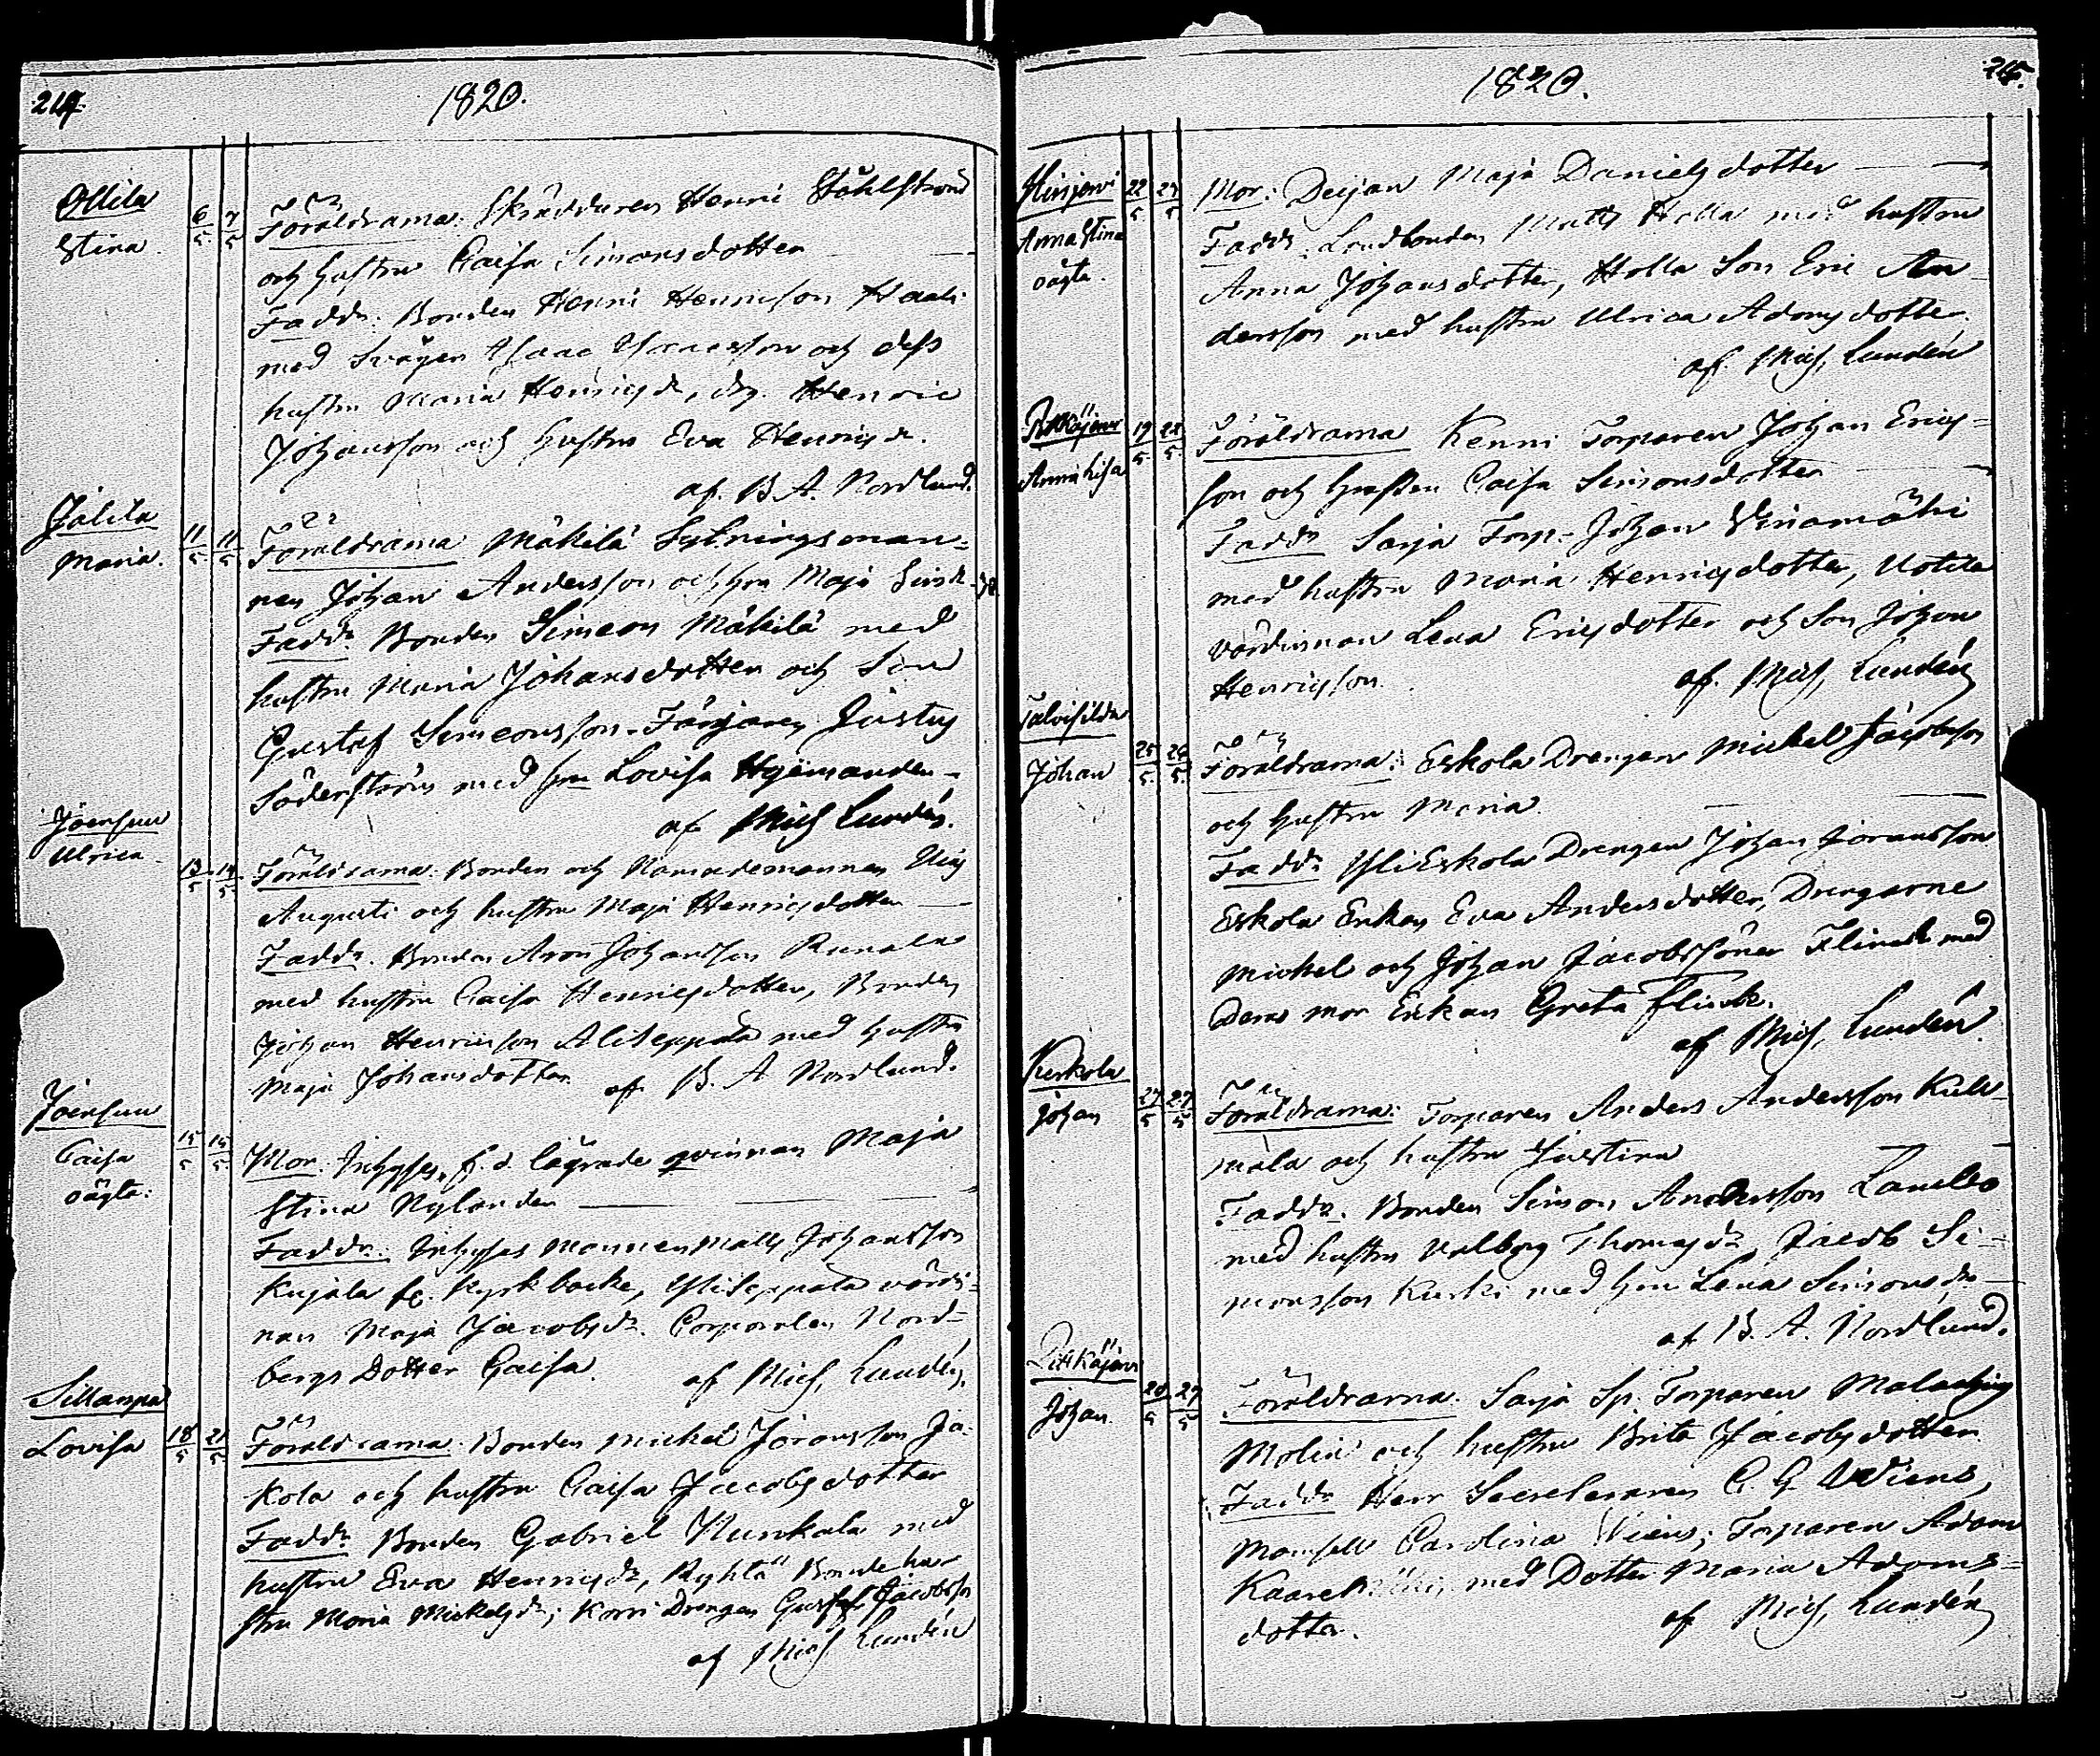 214.
1820.
Ottila
Stina.
6/5 7/5
Föräldrarna: Skräddaren Henric Ståhlström
och hustru Caisa Simonsdotter
Faddr: Bonden Henric Henricsson
med Svågern Isaac Isacsson och dess
hustru Maria Henricsdr, drg. Henric
Johansson och hustru Eva Henricsdr.
af. B. A. Nordlund.
Jålila
Maria.
11/5 11/5
Föräldrarna Mäkilä Sytningsman-
nen Johan Andersson och hru Maja
Faddr. Bonden Simeon Mäkilä med
hustru Maria Johansdotter och Son
Gustaf Simeonsson. Färjaren Justus
Söderström med hru Lovisa
af Mich Lundén.
Joensuu
Ulrica
13/5 14/5
Föräldrarna: Bonden och Nämndemannen
Augusti och hustru Maja Henricsdotter
Faddr. Bonden Aron Johansson
med hustru Caisa Henricsdotter, Bonden
Johan Henricsson Aliseppälä med hustru
Maja Johansdotter af. B. A Nordlund.
Joensuu
Caisa
oägta.
15/5 15/5
Mor: Inhyses, f. d. lägrade qvinnan Maja
Stina Nylander
Faddr: Inhyses Mannen Matts Johansson
Kujala fr. Kyrkbacke, Yliseppälä värdi-
nan Maja Jacobsdr. Corporalen Nord-
bergs Dotter Caisa. af Mich, Lundén.
Sillanpä
Lovisa
18/5 21/5
Föräldrarna: Bonden Michel Jöransson Ja-
kola och hustru Caisa Jacobsdotter
Faddr: Bonden Gabriel Nunkala med
hustru Eva Henricsdr, Ryhtä Bonde hu-
stru Maria Mickelsdr; Korri Drengen Gustaf Jacobsson
af Mich Lundén
1820.
215.
Hirsjerwi
Anna Stina
oägta.
22/5 23/5
Mor: Deijan Maja Danielsdotter
Faddr: Landbonden Matts Holla med hustru
Anna Johansdotter, Holla Son Eric An-
dersson med hustru Ulrica Adamsdotter.
af. Mich, Lundén
Pitkäjerwi
Anna Lisa
19/5 22/5
Föräldrarna Kenni Torparen Johan Erics-
son och hustru Caisa Simonsdotter
Faddr Sarja Torp. Johan
med hustru Maria Henricsdotter, Uotila
värdinnan Lena Ericsdotter och Son Johan
Henricsson. af. Mich, Lundén
Talvisilda
Johan
25/5 26/5
Föräldrarna: Eskola Drengen Mickel Jacobsson
och hustru Maria
Faddr YliEskola Drengen Johan Jöransson
Eskola Enkan Eva Andersdotter, Drengarne
Mickel och Johan Jacobssöner Flinck med
deras mor Enkan Greta Flinck.
af Mich, Lundén
Keskola
Johan
27/5 27/5
Föräldrarna: Torparen Anders Andersson Kulu-
mala och hustru Justina
Faddr. Bonden Simon Andersson
med hustru Valborg Thomasdr, Jacob Si-
monsson Kurki med hru Lena Simonsdr
af B. A. Nordlund.
Pitkäjerwi
Johan.
28/5 29/5
Föräldrarna: Sarja Sp. Torparen Malachias
Molin och hustru Brita Jacobsdotter
Faddr Herr Secreteraren C. G. Wiens,
Mamsell Carolina Wiens; Torparen Adam
med Dotter Maria Adams-
dotter. af Mich, Lundén